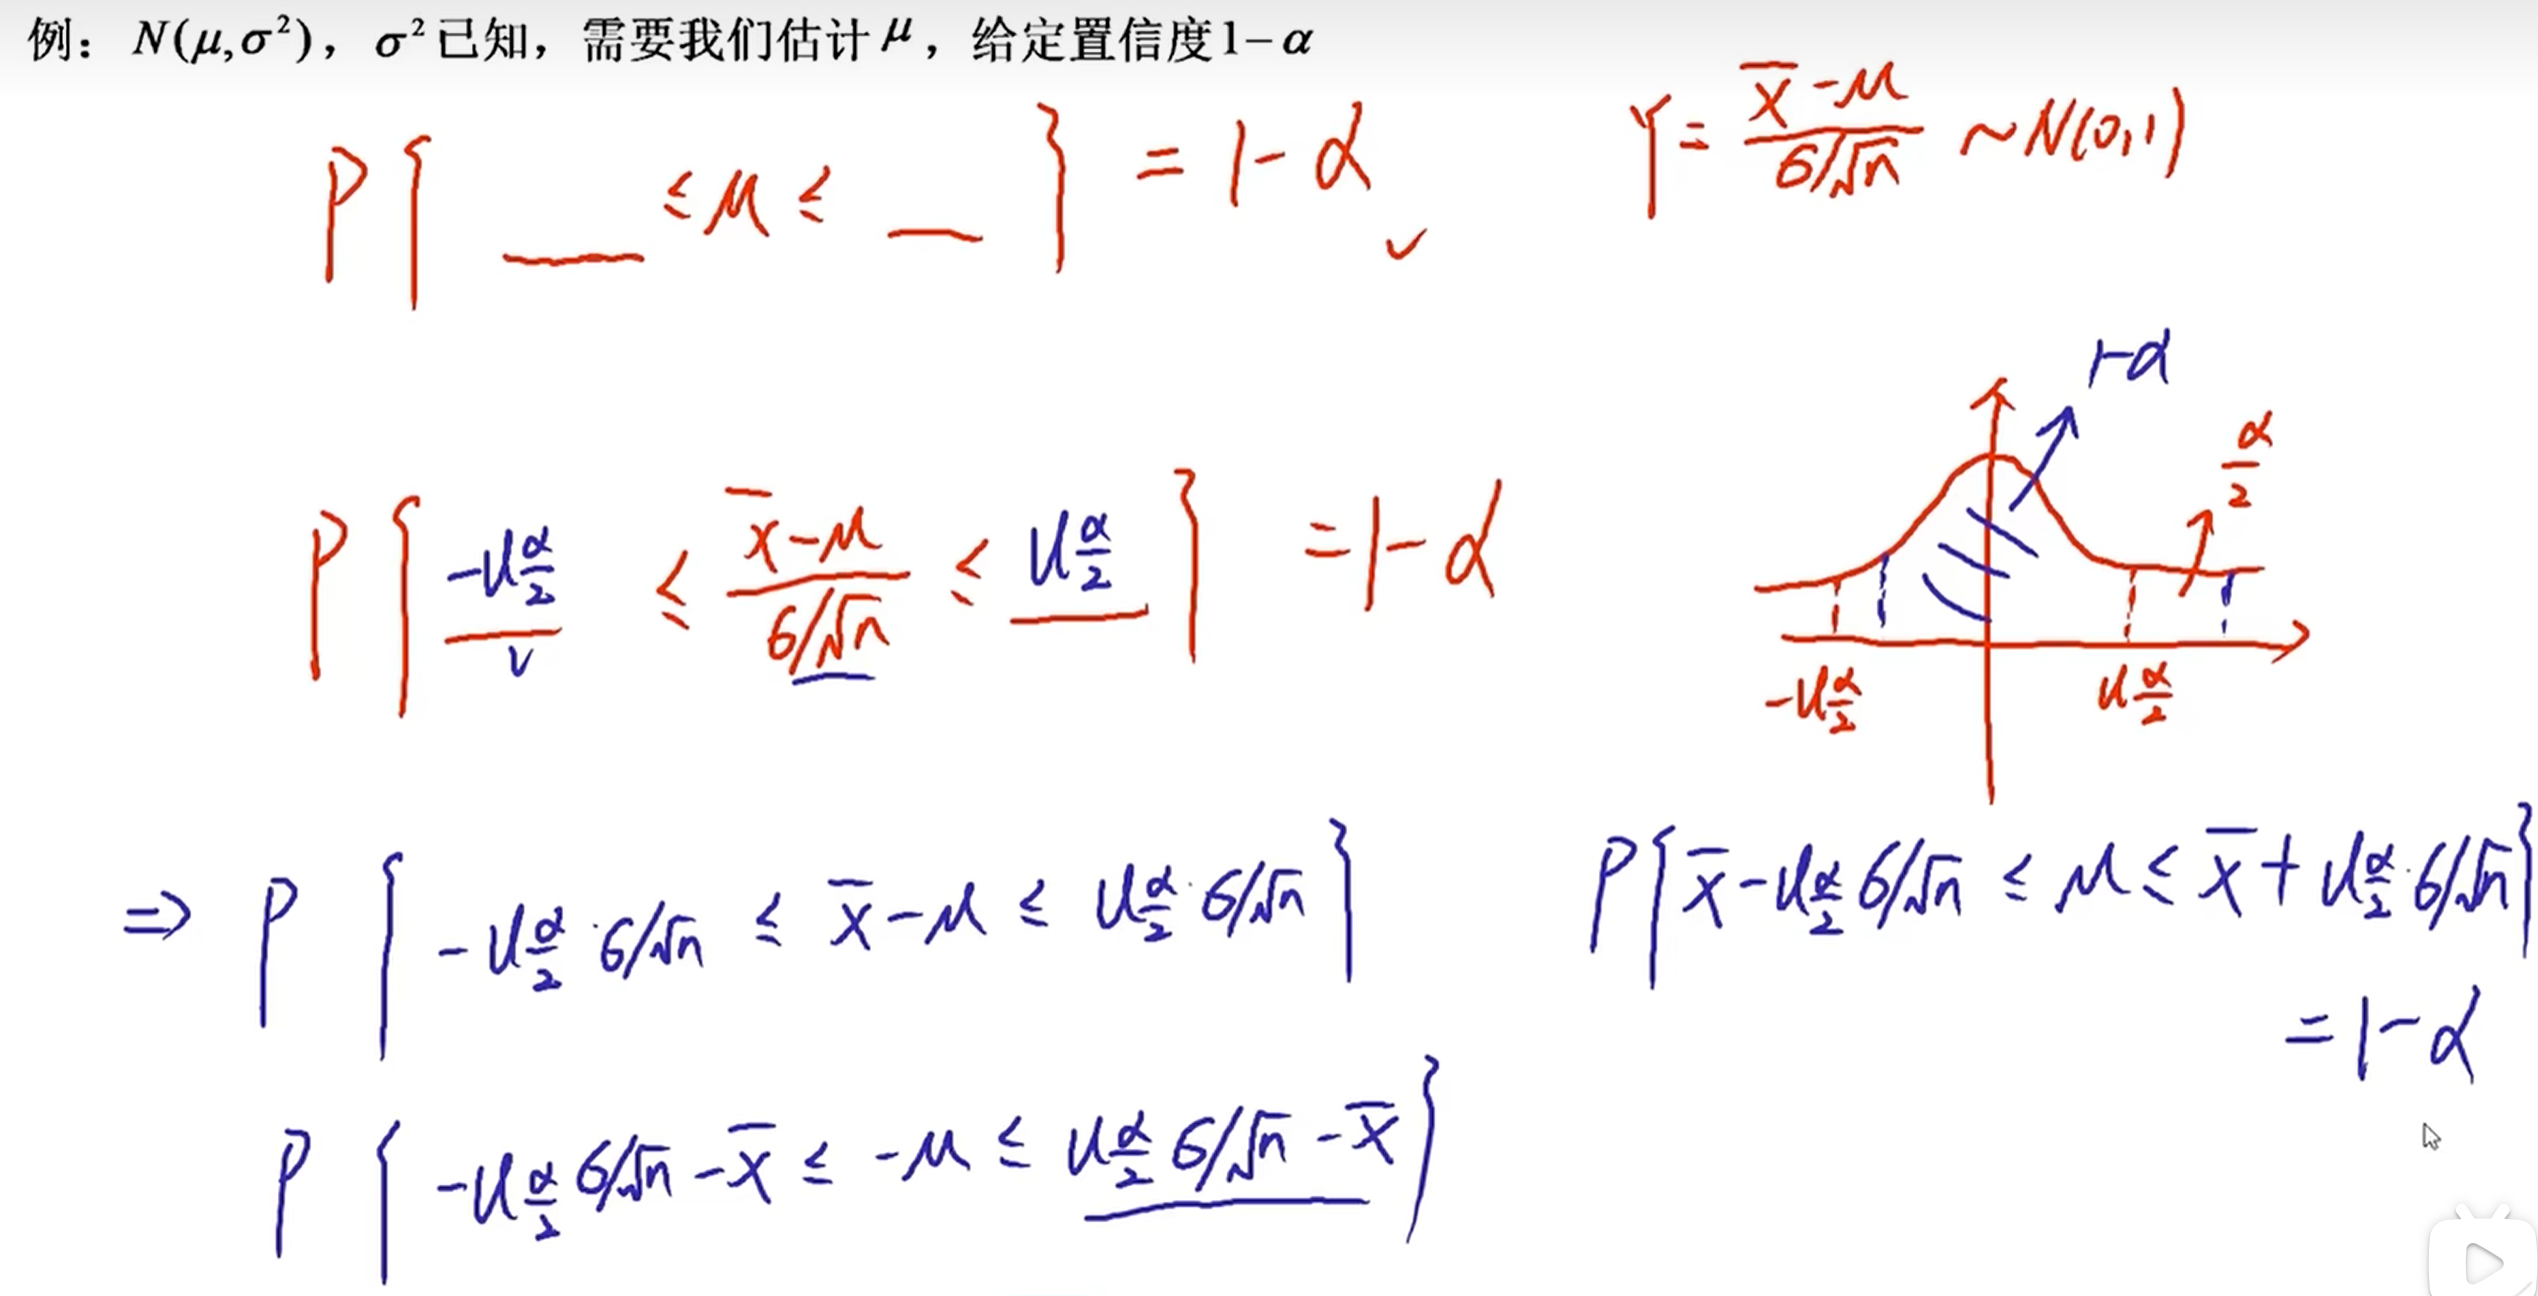 例：N(μ,σ²)，σ²已知，需要我们估计μ，给定置信度1−α
P{ __ ≤ μ ≤ __ } = 1−α
Y = (x̄−μ)/(σ/√n) ~ N(0,1)
P{ −u_{α/2} ≤ (x̄−μ)/(σ/√n) ≤ u_{α/2} } = 1−α
1−α
α/2
−u_{α/2}
u_{α/2}
⇒ P{ −u_{α/2}·σ/√n ≤ x̄−μ ≤ u_{α/2}·σ/√n }
P{ −u_{α/2} σ/√n −x̄ ≤ −μ ≤ u_{α/2} σ/√n −x̄ }
P{ x̄−u_{α/2} σ/√n ≤ μ ≤ x̄+u_{α/2}·σ/√n }
= 1−α